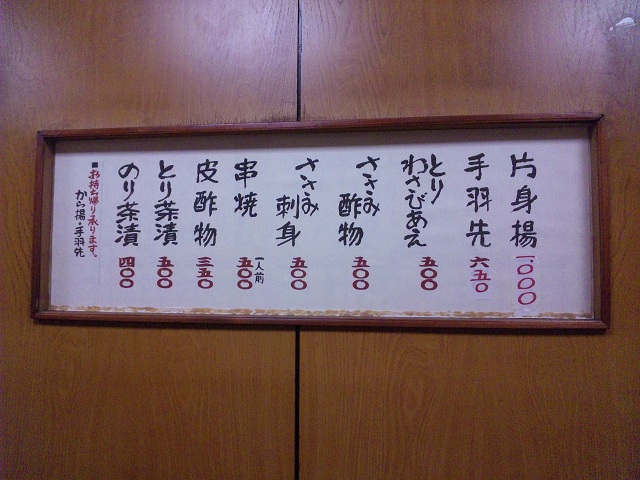 片身揚 一、〇〇〇
手羽先 六五〇
とり
わさびあえ 五〇〇
ささみ
酢物 五〇〇
ささみ
刺身 五〇〇
串焼 一人前 五〇〇
皮酢物 三五〇
とり茶漬 五〇〇
のり茶漬 四〇〇
■お持ち帰り承ります。
から揚・手羽先